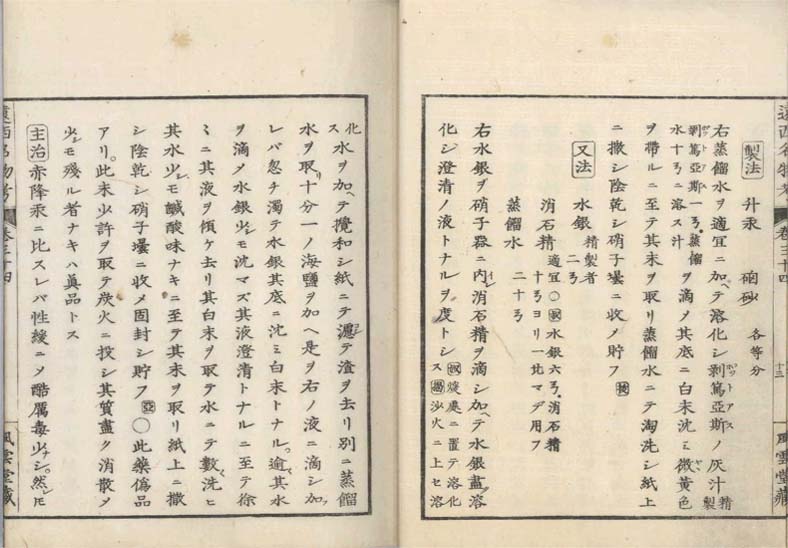 遠西名物考
卷三十四
十三
風雲堂藏
製法
升汞　硇砂　各等分
右蒸餾水ヲ適宜ニ加ヘテ溶化シ剥篤亞斯ノ灰汁精製
剥篤亞斯一ヲ蒸餾水十ヲニ溶ス汁ヲ滴メ其底ニ白末沈ミ微黄色
ヲ帶ルニ至テ其末ヲ取リ蒸餾水ニテ淘洗シ紙上
ニ撒シ陰乾シ硝子壜ニ收メ貯フ
又法
水銀精製者二ヲ
消石精適宜〇水銀六ヲ消石精十ヲヨリ一比マデ用フ
蒸餾水　二十ヲ
右水銀ヲ硝子器ニ内レ消石精ヲ滴シ加ヘテ水銀盡ク溶
化シ澄清ノ液トナルヲ度トシス煖處ニ置テ溶化ス沙火ニ上セ溶
化ス水ヲ加ヘテ攪和シ紙ニテ濾テ渣ヲ去リ別ニ蒸餾
水ヲ取リ十分一ノ海鹽ヲ加ヘ是ヲ右ノ液ニ滴シ加
レバ忽チ濁テ水銀其底ニ沈ミ白末トナル逾其水
ヲ滴メ水銀少シモ沈マズ其液澄清トナルニ至テ徐
ミニ其液ヲ傾ケ去リ其白末ヲ取テ水ニテ數洗ヒ
其水少シモ鹹酸味ナキニ至テ其末ヲ取リ紙上ニ撒
シ陰乾シ硝子壜ニ收メ固封シ貯フ〇此藥僞品
アリ此末少許ヲ取テ炭火ニ投シ其質盡ク消散ヲ
少シモ殘ル者ナキハ眞品トス
主治赤降汞ニ比スレバ性緩ニメ酷厲毒少ナシ然レモ
遠西名物考
卷三十四
風雲堂藏